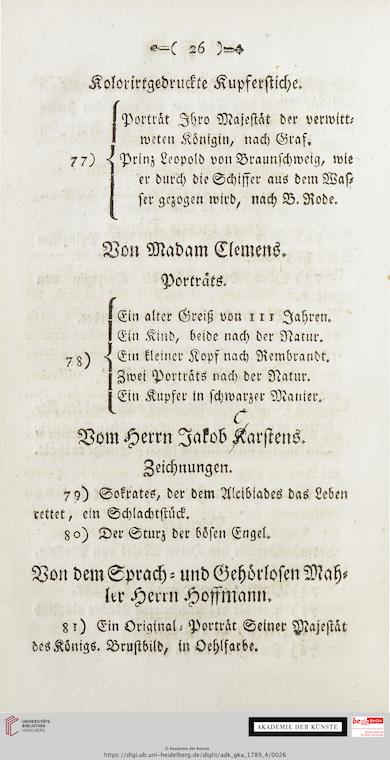 ( 26 )
Kolorirtgedruckte Kupferstiche.
Porträt Ihro Majestät der verwitt=
weten Königin, nach Graf.
77) Prinz Leopold von Braunschweig, wie
er durch die Schiffer aus dem Was=
ser gezogen wird, nach B. Rode.
Von Madam Clemens.
Porträts.
Ein alter Greiß von 111 Jahren.
Ein Kind, beide nach der Natur.
78) Ein kleiner Kopf nach Rembrandt.
Zwei Porträts nach der Natur.
Ein Kupfer in schwarzer Manier.
C
Vom Herrn Jakob Karstens.
Zeichnungen.
79) Sokrates, der dem Alcibiades das Leben
rettet, ein Schlachtstück.
80) Der Sturz der bösen Engel.
Von dem Sprach= und Gehörlosen Mah=
ler Herrn Hoffmann.
81) Ein Original= Porträt Seiner Majestät
des Königs. Brustbild, in Oehlfarbe.
UNIVERSITÄTS-
BIBLIOTHEK
HEIDELBERG
AKADEMIE DER KÜNSTE
© Akademie der Künste
https://digi.ub.uni-heidelberg.de/diglit/adk_gka_1789_4/0026